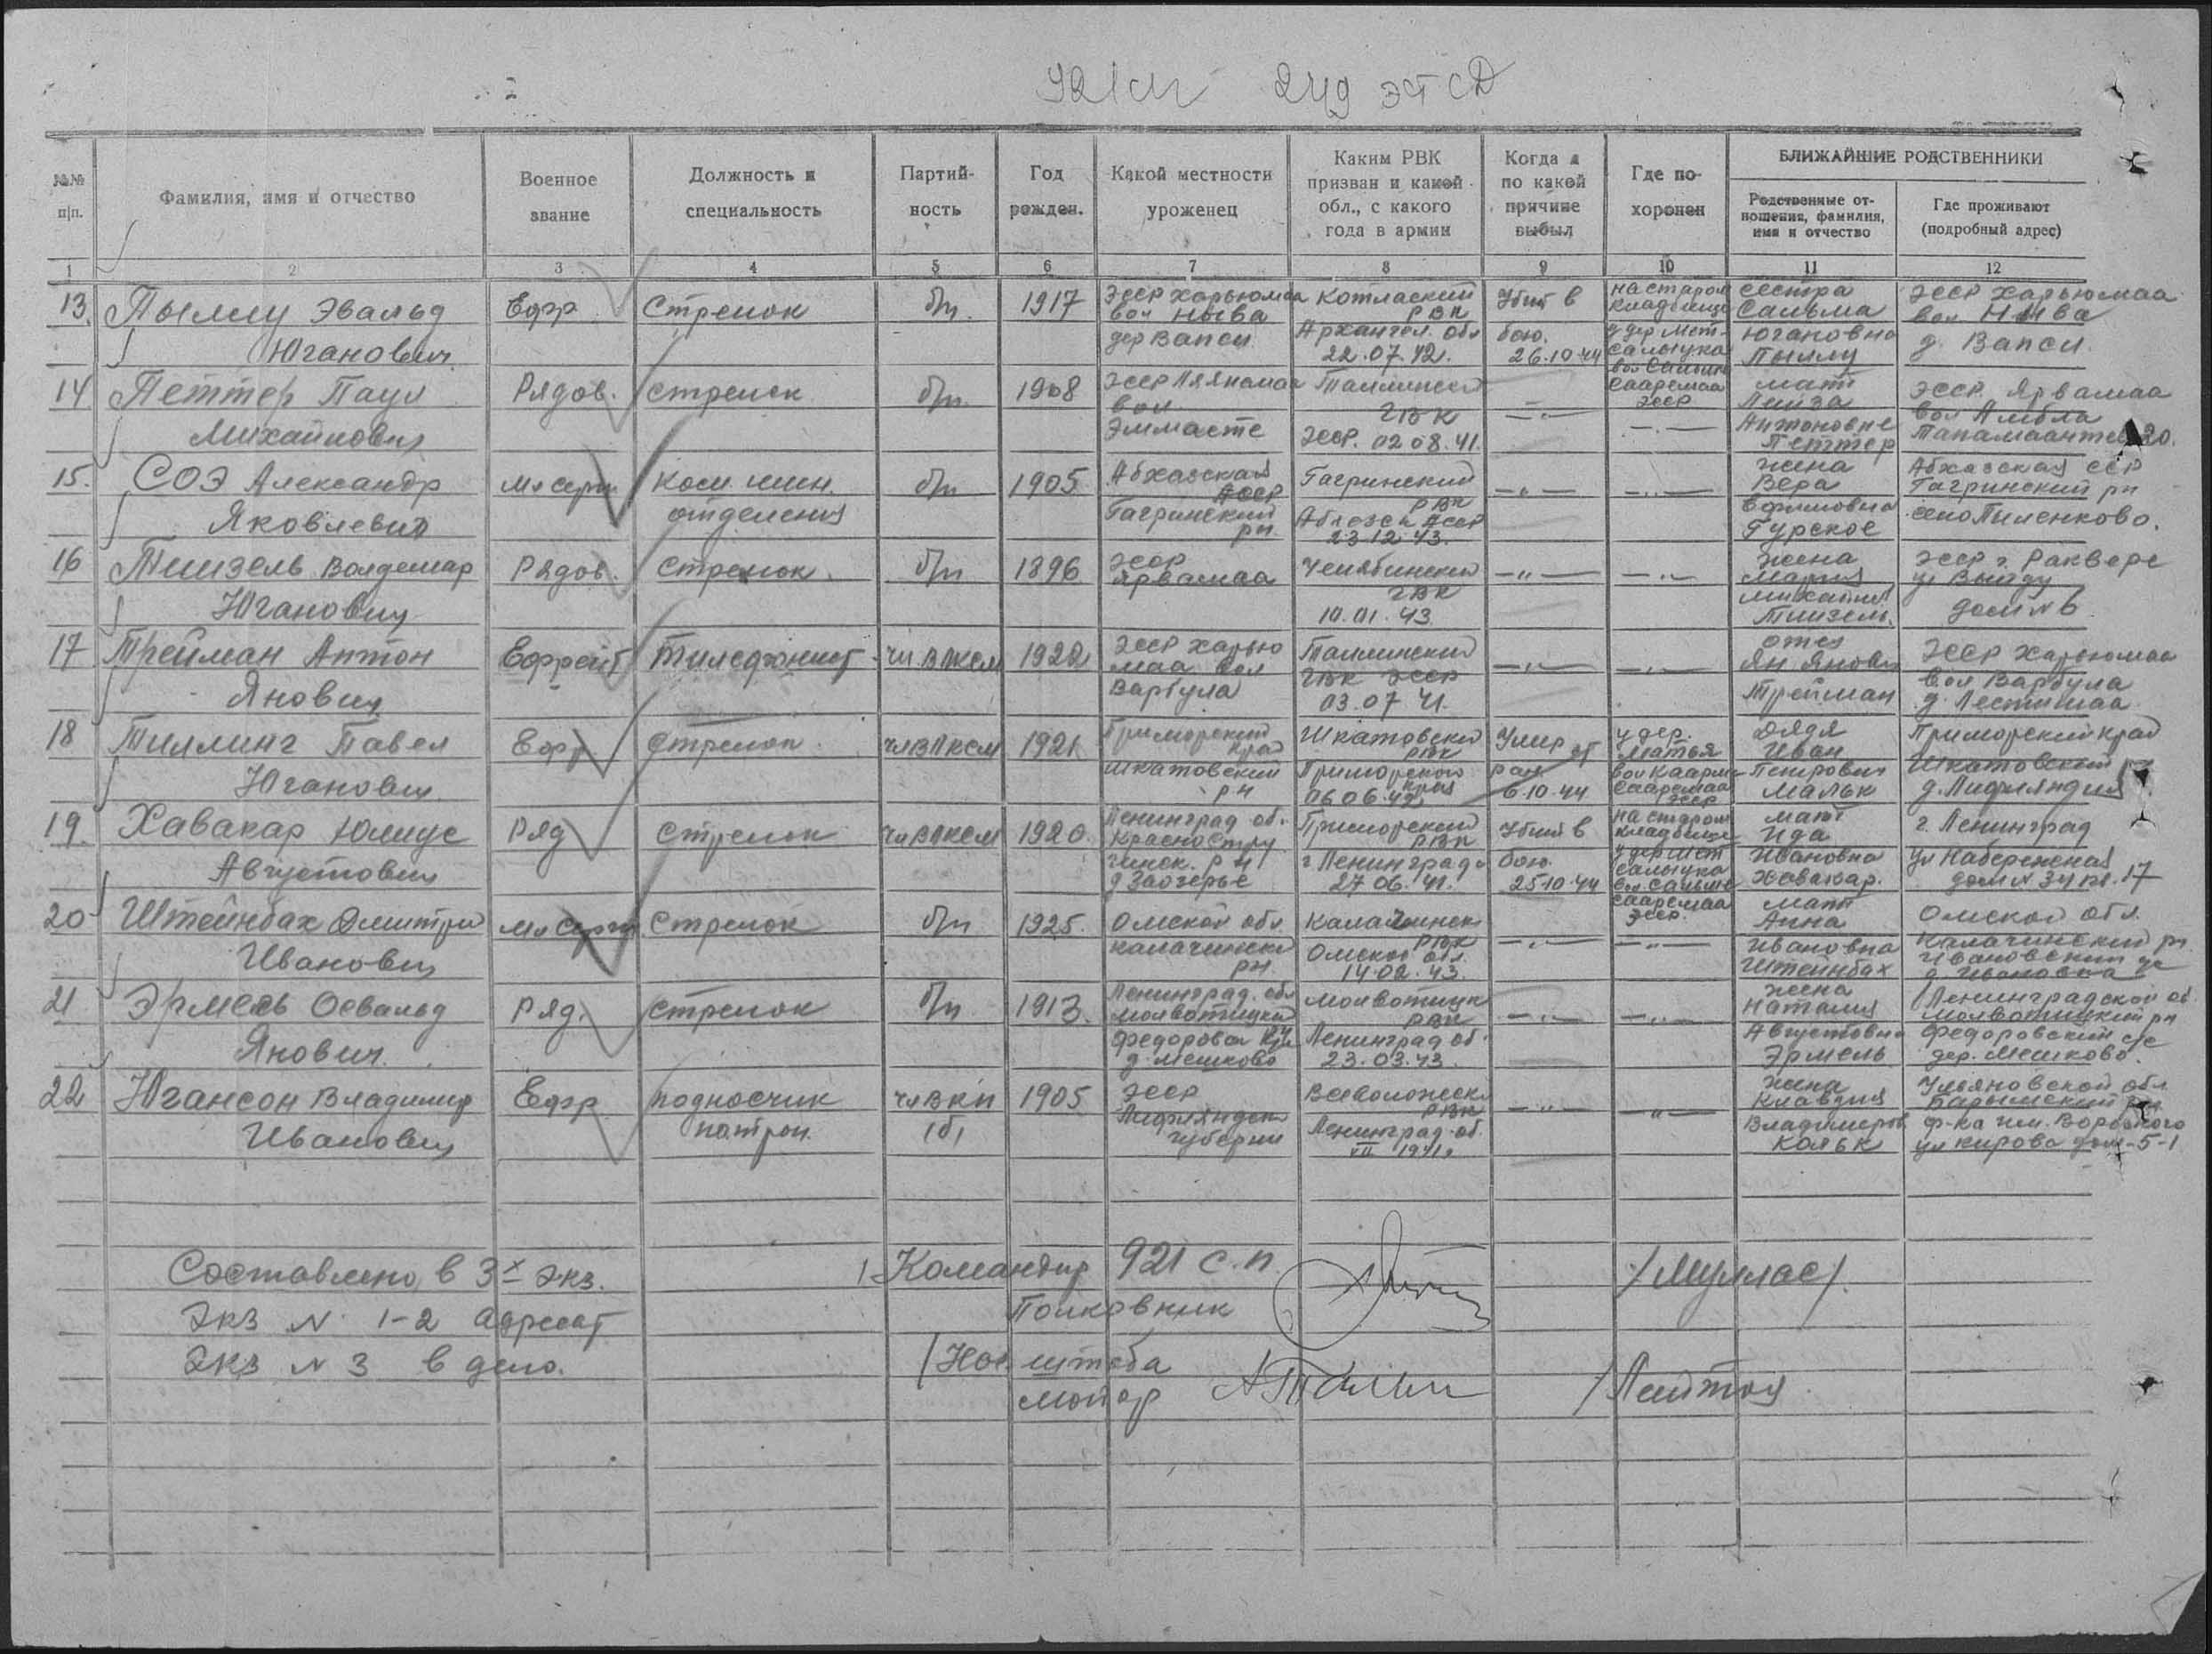 921 сп 249 эст СД
№№ п|п.
Фамилия, имя и отчество
Военное звание
Должность и специальность
Партий-ность
Год рожден.
Какой местности уроженец
Каким РВК призван и какой обл., с какого года в армии
Когда и по какой причине выбыл
Где по-хоронен
БЛИЖАЙШИЕ РОДСТВЕННИКИ
Родственные от-ношения, фамилия, имя и отчество
Где проживают (подробный адрес)
1 2 3 4 5 6 7 8 9 10 11 12
13. Пыллу Эвальд Юганович Ефр Стрелок б/п. 1917 ЭССР Харьюмаа вол Ныва дер Вапси Котлаский РВК Архангел. обл 22.07.42. Убит в бою. 26.10.44 На старом кладбище у дер Мет- Салыука вол Сальме Сааремаа ЭССР сестра Сальма Югановна Пыллу ЭССР Харьюмаа вол Ныва д. Вапси
14 Петтер Паул Михайлович Рядов. стрелок б/п. 1908 ЭССР Ляянемаа вол. Эммасте Таллински ГВК ЭССР. 02.08.41. —„— —„— мать Лейза Антоновне Петтер ЭССР. Ярвамаа вол Амбла 20.
15. СОЭ Александр Яковлевич Мл серж Ком. мин. отделения б/п 1905 Абхазская АССР Гагринский рн Гагринский РВК АССР 23.12.43. —„— —„— жена Вера Ефимовна Гурское Абхазская ССР Гагринский рн село Пиленково.
16 Тимзель Волдемар Юганович Рядов. Стрелок. б/п 1896 ЭССР Ярвамаа Челябински ГВК 10.01.43 —„— —„— жена Мария Тимзель. ЭССР г. Раквере ул Выйду дом N 6
17 Трейман Антон Янович Ефрейт Телефонист чл ВЛКСМ 1922 ЭССР Харью маа вол Варбула Таллински ГВК ЭССР 03.07 41. —„— —„— отец Ян Янович Трейман ЭССР Харьюмаа вол Варбула д.
18 Тиллинг Павел Юганович Ефр Стрелок чл ВЛКСМ 1921 Приморский край Шкатовский рн Шкатовски РВК Приморского края 06.06.42 Умер от ран 6.10.44 у дер. Матья вол Каарма Сааремаа ЭССР дядя Иван Петрович Мальк Приморский край Шкатовский д. Лифляндия
19. Хавакар Юлиус Августович Ряд Стрелок чл ВЛКСМ 1920. Ленинград об. Красностру гинск. рн д Заозерье Приморский РВК г Ленинграда 27.06.41. Убит в бою. 25.10.44 На старом кладбище у дер Мет Салыука вол Сальме Сааремаа ЭССР. мать Ида Ивановна Хавакар. г. Ленинград ул Набережная дом N 34 кв. 17
20 Штейнбах Дмитри Иванович Мл Серж. Стрелок б/п 1925. Омской обл Калачински рн Калачинск РВК Омской обл. 14.02.43. —„— —„— мать Анна Ивановна Штейнбах Омской обл. Калачинский рн Ивановский сс д. Ивановка
21 Эрмель Освальд Янович. Ряд. Стрелок б/п 1913. Ленинград. обл Молвотицкий д. Мешково Молвотицк РВК Ленинград об. 23.03.43. —„— —„— жена Наталия Августовна Эрмель Ленинградской об. Молвотицкий рн Федоровский с/с дер. Мешково.
22 Югансон Владимир Иванович Ефр подносчик патрон. чл ВКП (б) 1905 ЭССР Лифляндск губернии Всеволожск РВК Ленинград. об. VII 1941г —„— —„— жена Клавдия Владимиров Кольк Ульяновской обл. Барышский рн ф-ка им. Воровского ул Кирова дом-5-1
Составлено в 3х экз.
Экз N 1-2 адресат
Экз N 3 в дело.
Командир 921 с.п.
Полковник /Муллас/.
Нач штаба
Майор